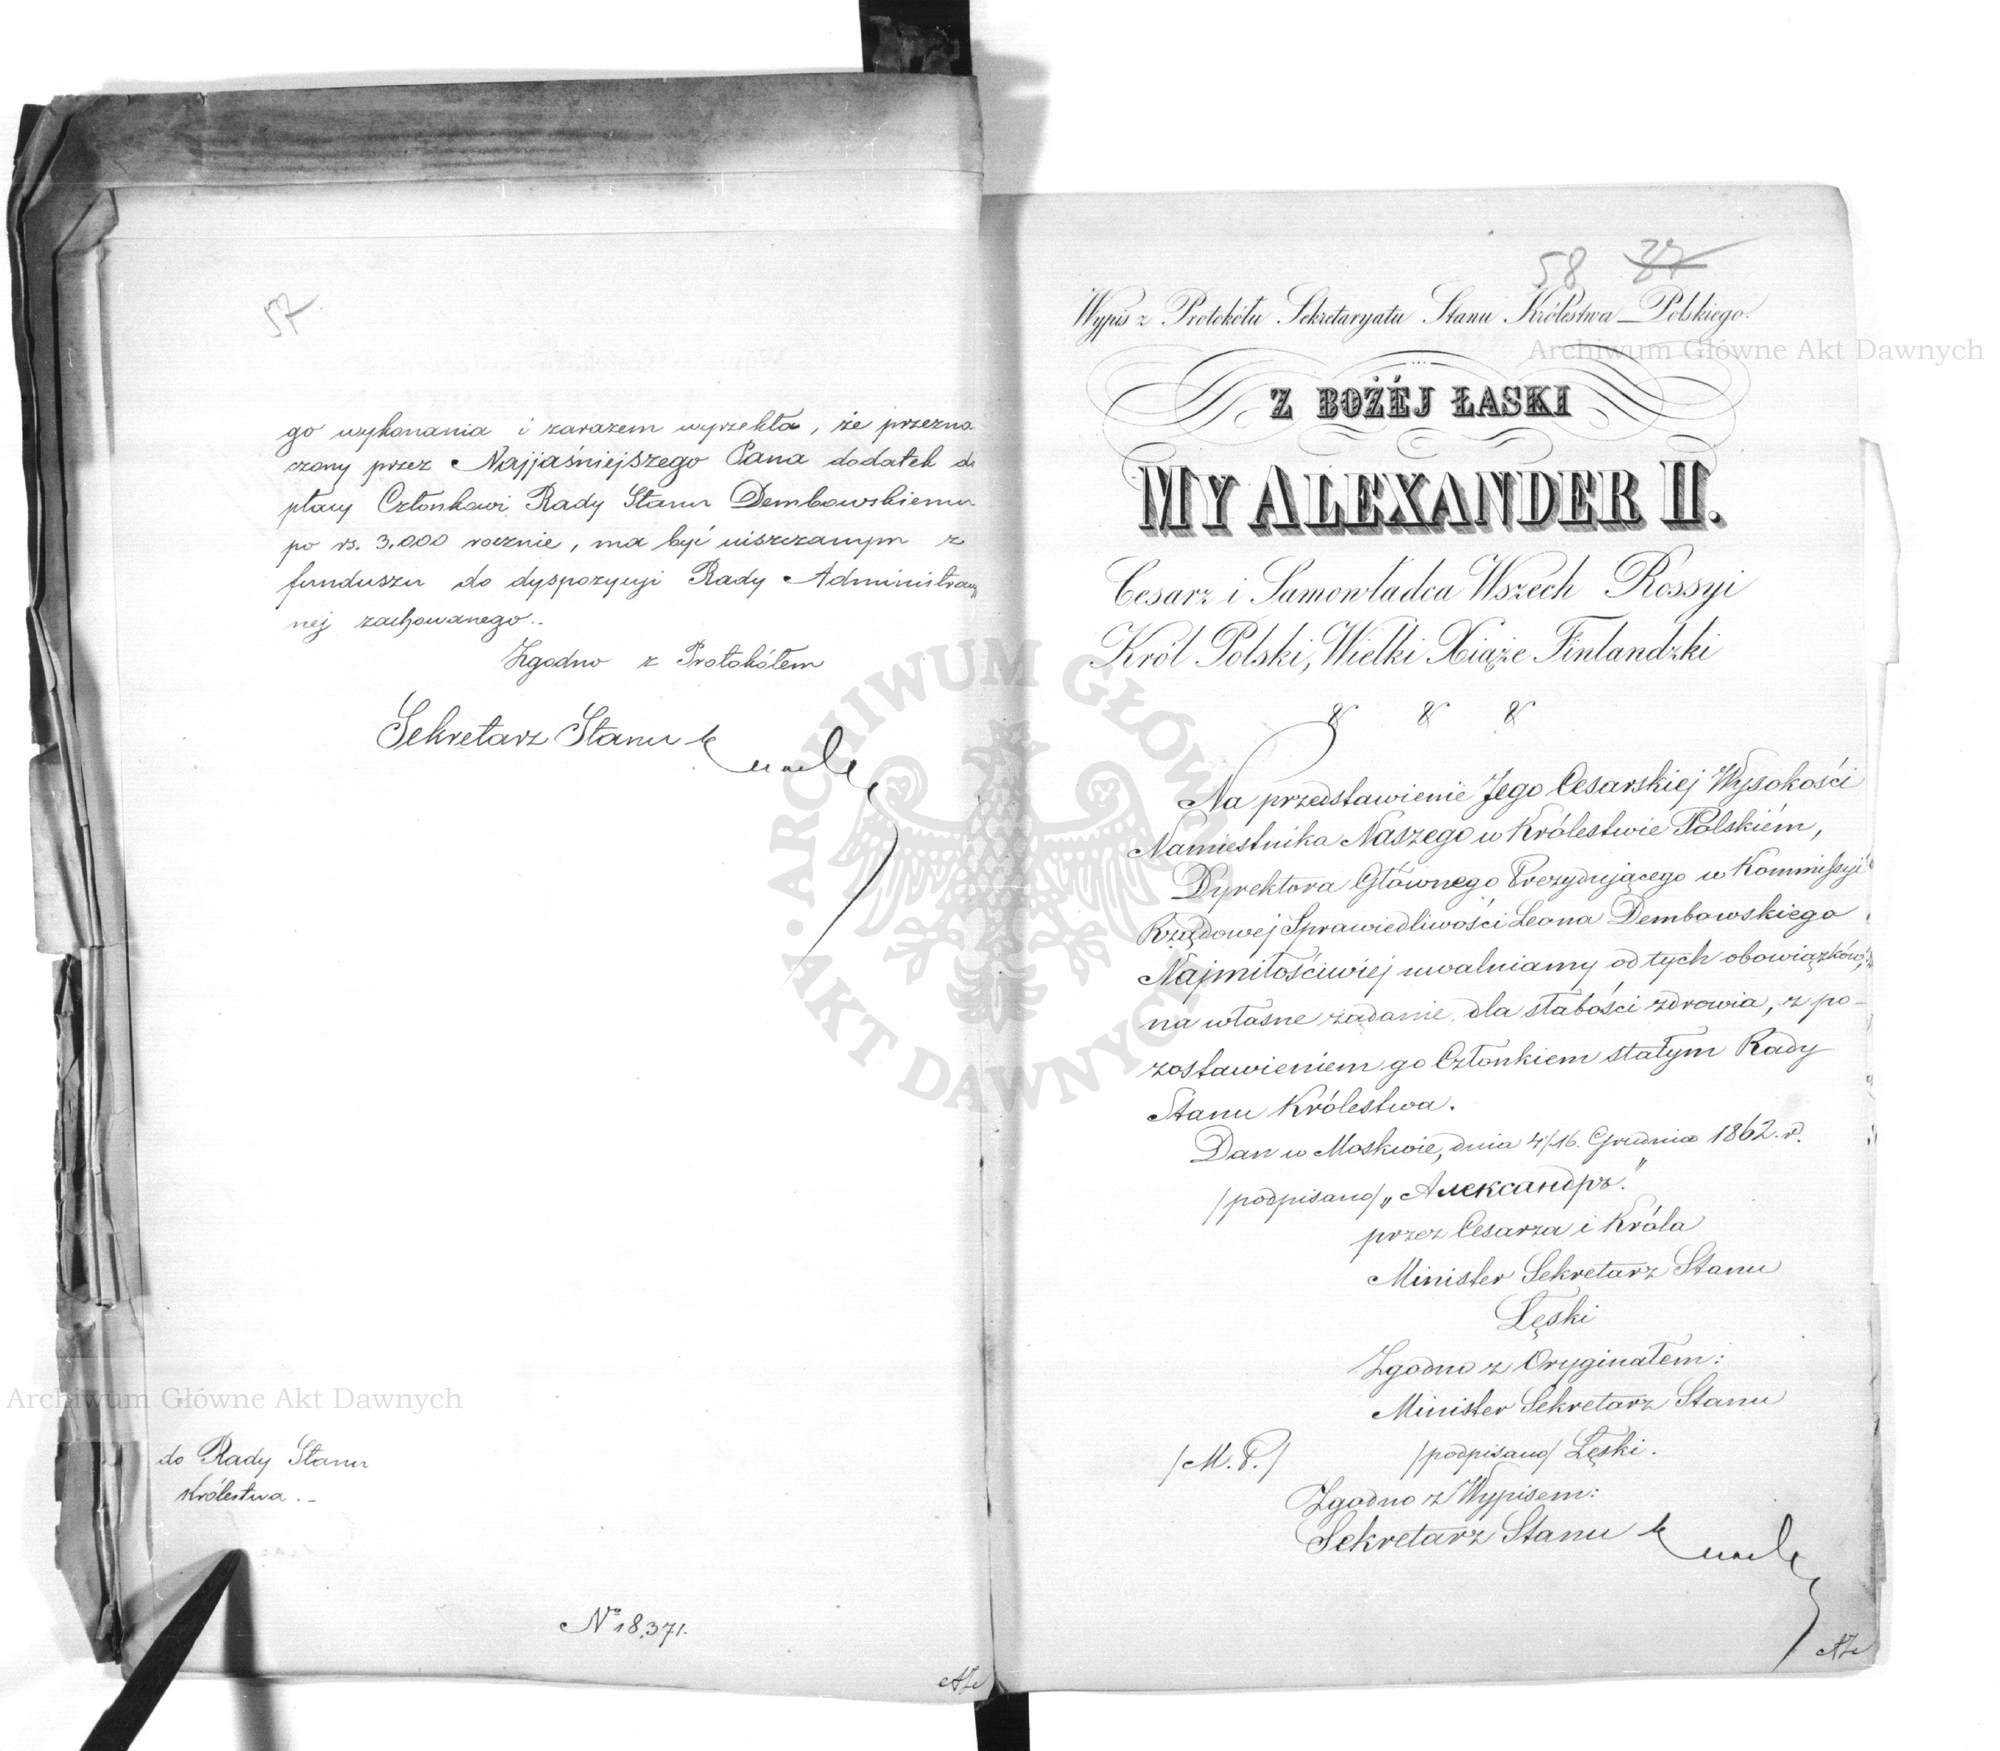 57
go wykonania i zarazem wyrzekła, że przezna
czony przez Najjaśniejszego Pana dodatek do
płacy Członkowi Rady Stanu Dembowskiemu
po rs. 3.000 rocznie, ma być uiszczanym z
funduszu do dyspozycyi Rady Administracyj
nej zachowanego..
Zgodno z Protokółem
Sekretarz Stanu
do Rady Stanu
Królestwa._
No 18,371.
58 37
Wypis z Protokółu Sekretaryatu Stanu Królestwa Polskiego.
Z BOŻÉJ ŁASKI
MY ALEXANDER II.
Cesarz i Samowładca Wszech Rossyi
Król Polski, Wielki Xiąże Finlandzki
& & &
Na przedstawienie Jego Cesarskiej Wysokości
Namiestnika Naszego w Królestwie Polskiém,
Dyrektora Głównego Prezydującego w Kommissyi
Rządowej Sprawiedliwości Leona Dembowskiego
Najmiłościwiej uwalniamy od tych obowiązków,
na własne żądanie dla słabości zdrowia, z po-
zostawieniem go Członkiem stałym Rady
Stanu Królestwa.
Dan w Moskwie, dnia 4/16. Grudnia 1862. r.
/podpisano/ „Александръ."
przez Cesarza i Króla
Minister Sekretarz Stanu
Łęski
Zgodno z Oryginałem:
Minister Sekretarz Stanu
/M. P./ /podpisano/ Łęski.
Zgodno z Wypisem:
Sekretarz Stanu
Archiwum Główne Akt Dawnych
Archiwum Główne Akt Dawnych
ARCHIWUM GŁÓWNE AKT DAWNYCH